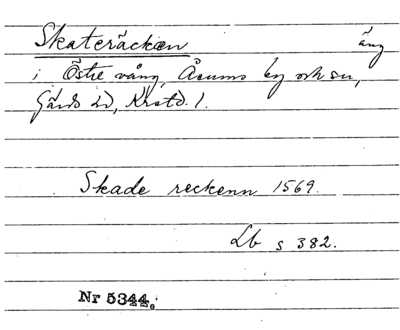 Skateräcken äng
i Östre vång, Åsums by och sn,
Gärds hd, Krstd. l.
Skade reckenn 1569.
Lb s 382.
Nr 5344.